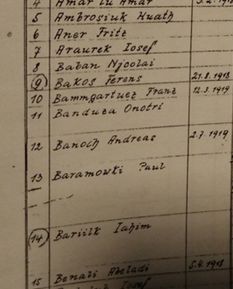 4 Amar lu Amar
5 Ambrosiuk Kuath
6 Aner Fritz
7 Araurek Josef
8 Baban Njcolai
9 Bakos Ferens 21.8.1918
10 Bammgartuez Franz 12.3.1919
11 Banduza Onotri
12 Banoch Andreas 2.7.1919
13 Baramowki Paul
14 Bariilk Jahim
15 Benasi Abeladi 5.4.1918